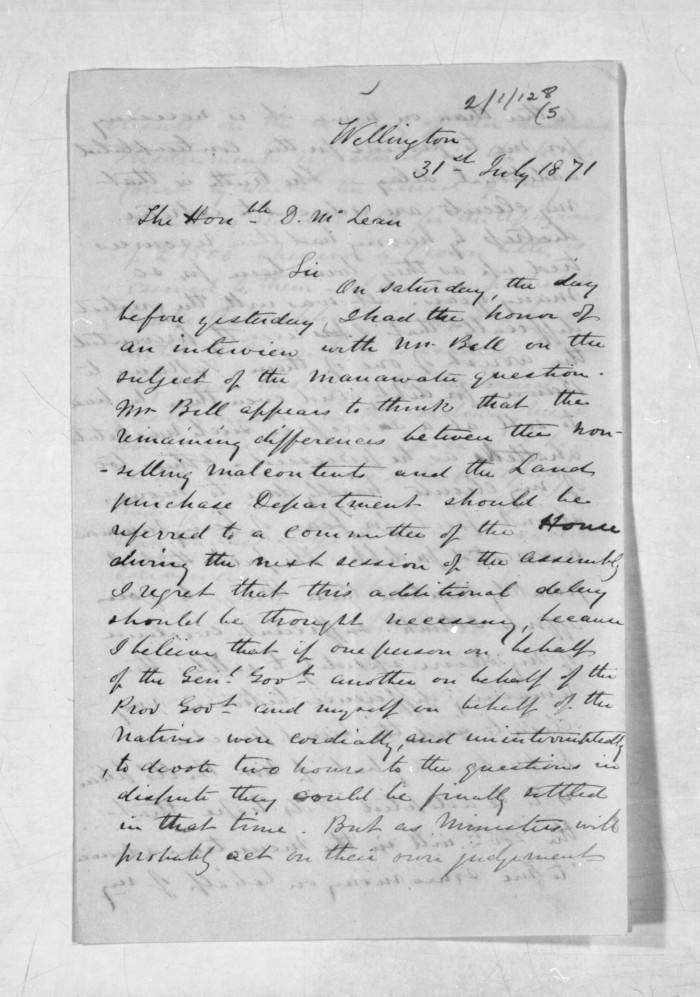 2/1/128
(5
Wellington
31st July 1871
The Honble D. McLean
Sir
On saturday, the day
before yesterday I had the honor of
an interview with Mr Bell on the
subject of the Manawatu question.
Mr Bell appears to think that the
remaining differences between the non-
-selling malcontents and the Land
purchase Department should be
referred to a committee of the House
during the next session of the Assembly
I regret that this additional delay
should be thought necessary, because
I believe that if one person on behalf
of the Genl Govt another on behalf of the
Prov Govt and myself on behalf of the
Natives were cordially, and uninterruptedly
, to devote two hours to the questions in
dispute they could be finally settled
in that time. But as Ministers will
probably act on their own judgement